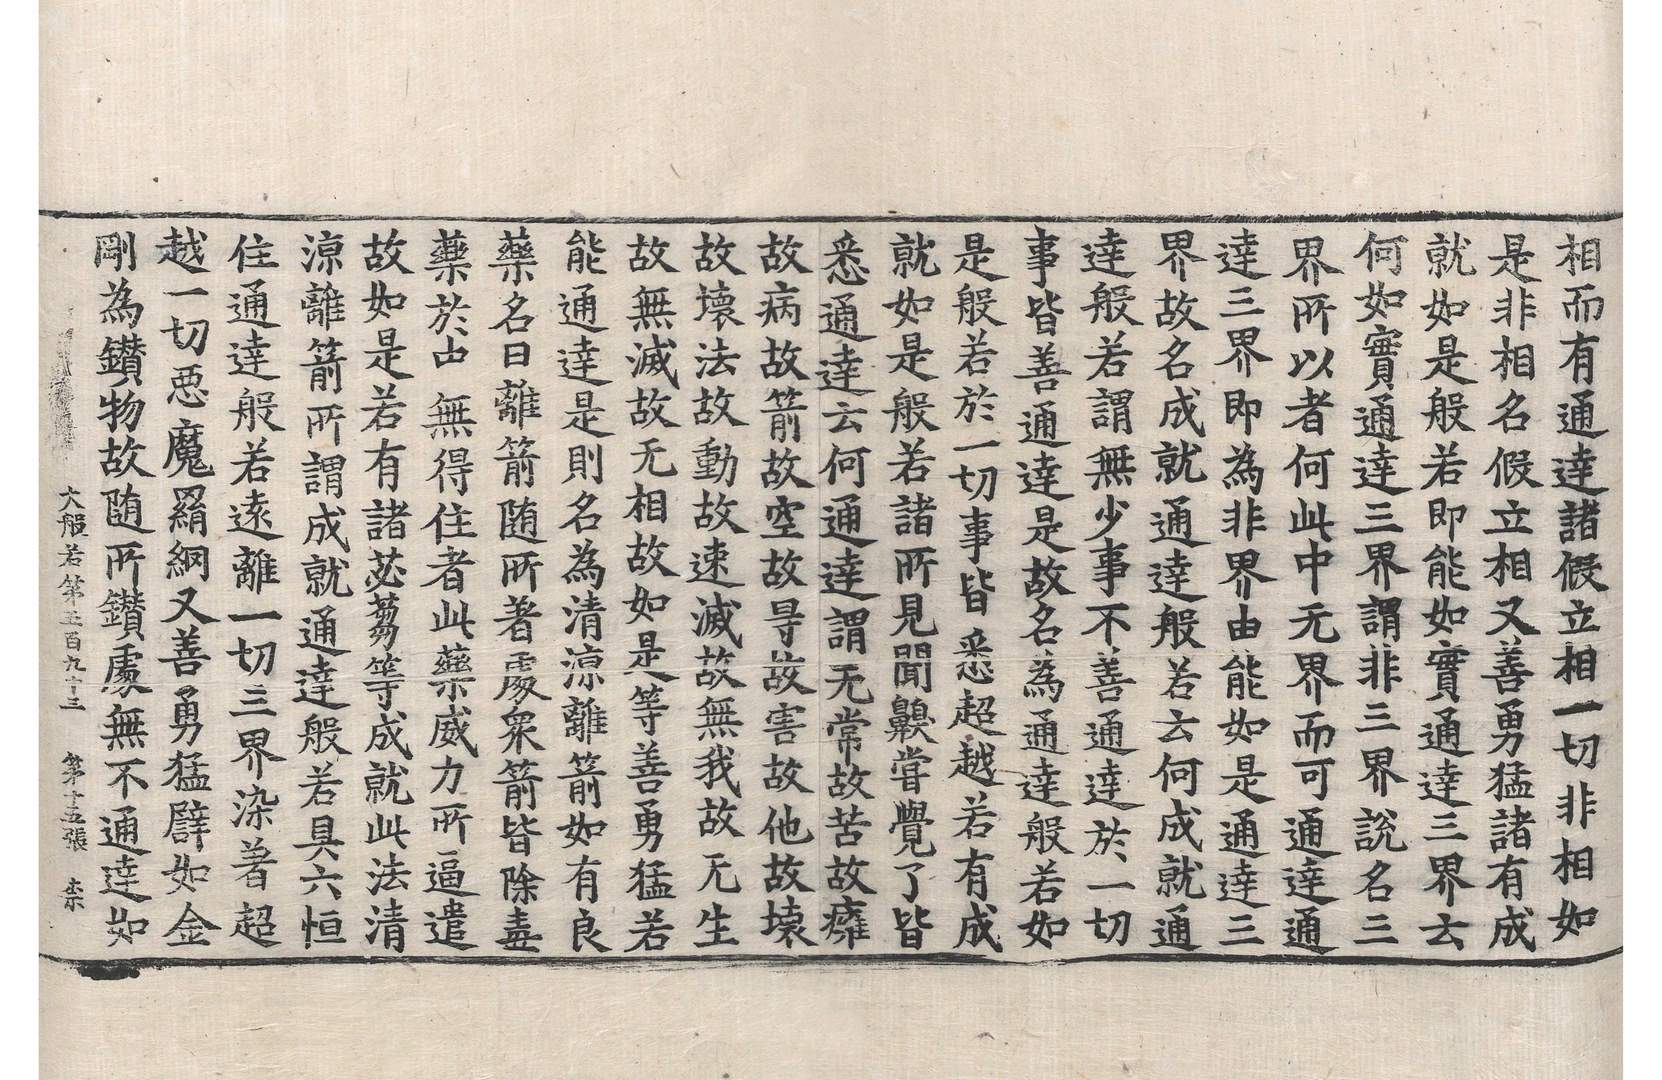 相而有通達諸假立相一切非相如
是非相名假立相又善勇猛諸有成
就如是般若即能如實通達三界云
何如實通達三界謂非三界說名三
界所以者何此中无界而可通達通
達三界即為非界由能如是通達三
界故名成就通達般若云何成就通
達般若謂無少事不善通達於一切
事皆善通達是故名為通達般若如
是般若於一切事皆悉超越若有成
就如是般若諸所見聞齅嘗覺了皆
悉通達云何通達謂无常故苦故癰
故病故箭故空故㝵故害故他故壞
故壞法故動故速滅故無我故无生
故無滅故无相故如是等善勇猛若
能通達是則名為清涼離箭如有良
藥名曰離箭随所著處衆箭皆除毒
藥於中無得住者此藥威力所逼遣
故如是若有諸苾芻等成就此法清
涼離箭所謂成就通達般若具六恒
住通達般若遠離一切三界染著超
越一切惡魔羂網又善勇猛譬如金
剛為鑽物故随所鑽處無不通達如
大般若第五百九十三 第十五張 柰